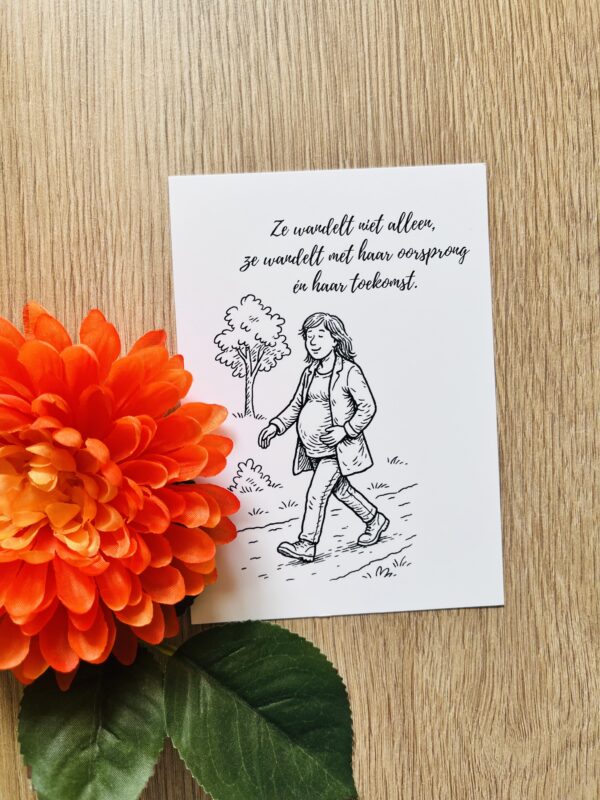 Ze wandelt niet alleen,
ze wandelt met haar oorsprong
én haar toekomst.